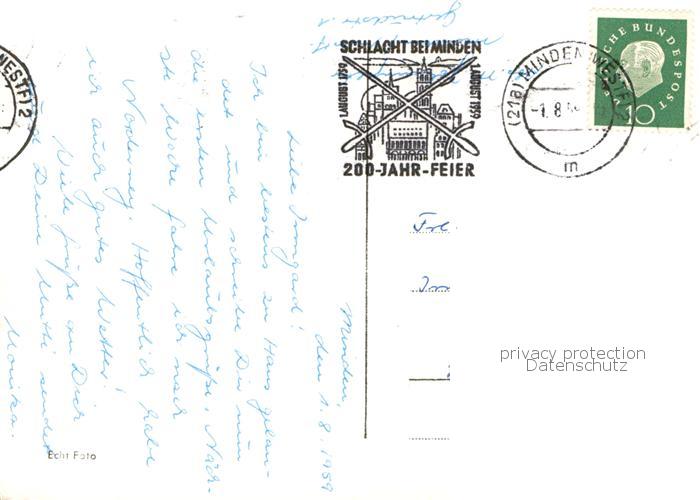 Minden,
den 1.8.1959
Liebe Irmgard!
Ich bin bestens zu Haus gelan-
det und schreibe Dir nun
die ersten Urlaubsgrüße. Näch-
ste Woche fahre ich nach
Norderney. Hoffentlich habe
ich auch gutes Wetter!
Viele Grüße an Dich
und Deine Mutti sendet
Monika.
Echt Foto
SCHLACHT BEI MINDEN
1. AUGUST 1759
1. AUGUST 1959
200-JAHR-FEIER
(21a) MINDEN (WESTF) 2
-1.8.
m
WESTF) 2
CHE BUNDESPOST
Frl.
privacy protection
Datenschutz